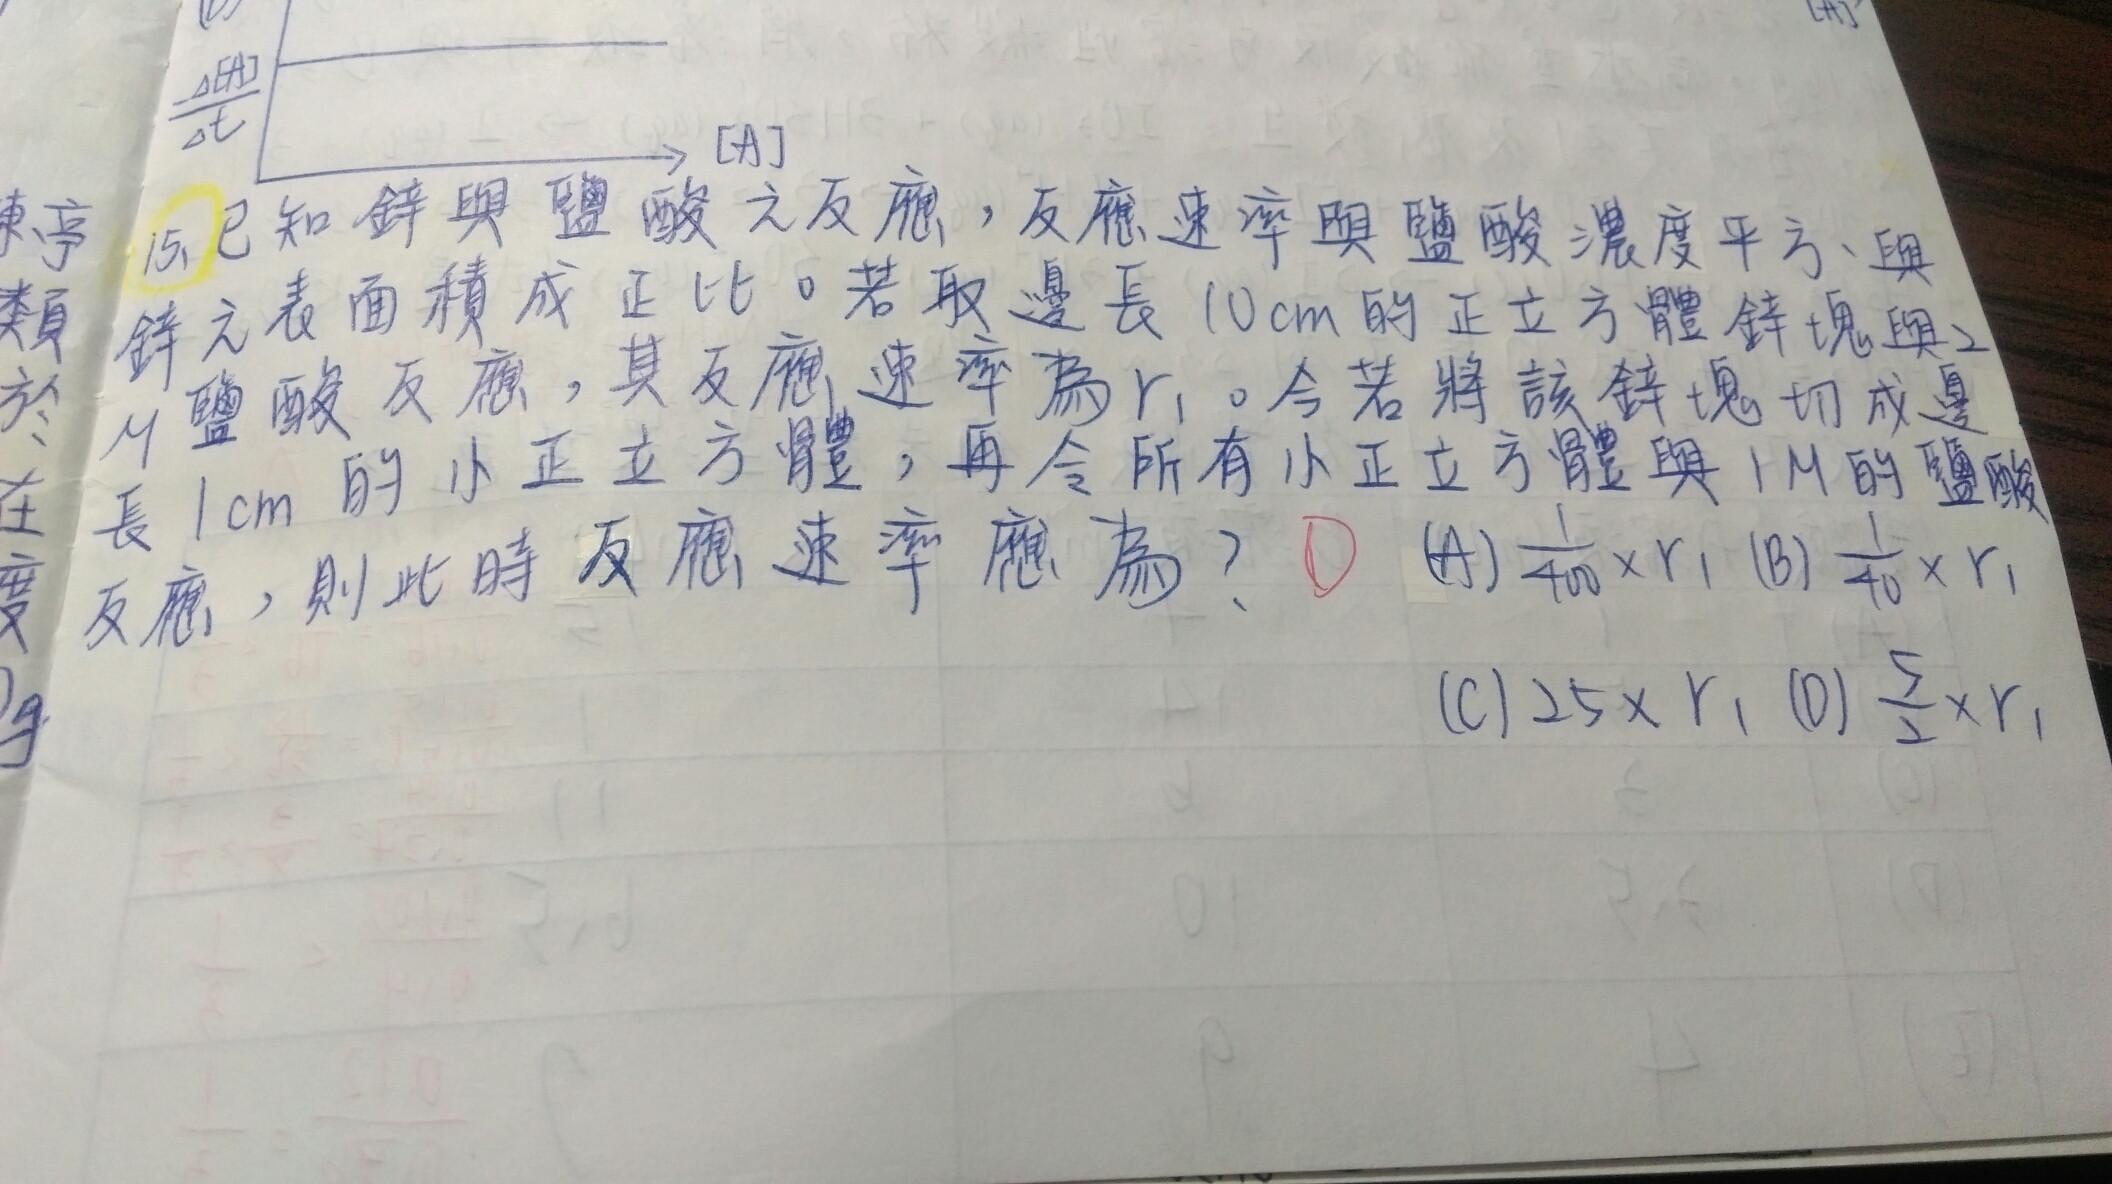 Δ[A]
Δt
[A]
15. 已知鋅與鹽酸之反應，反應速率與鹽酸濃度平方、與
鋅之表面積成正比。若取邊長10cm的正立方體鋅塊與2
M鹽酸反應，其反應速率為r₁。今若將該鋅塊切成邊
長1cm的小正立方體，再令所有小正立方體與1M的鹽酸
反應，則此時反應速率應為? D (A) 1/400 × r₁ (B) 1/40 × r₁
(C) 25 × r₁ (D) 5/2 × r₁
類
於
在
度